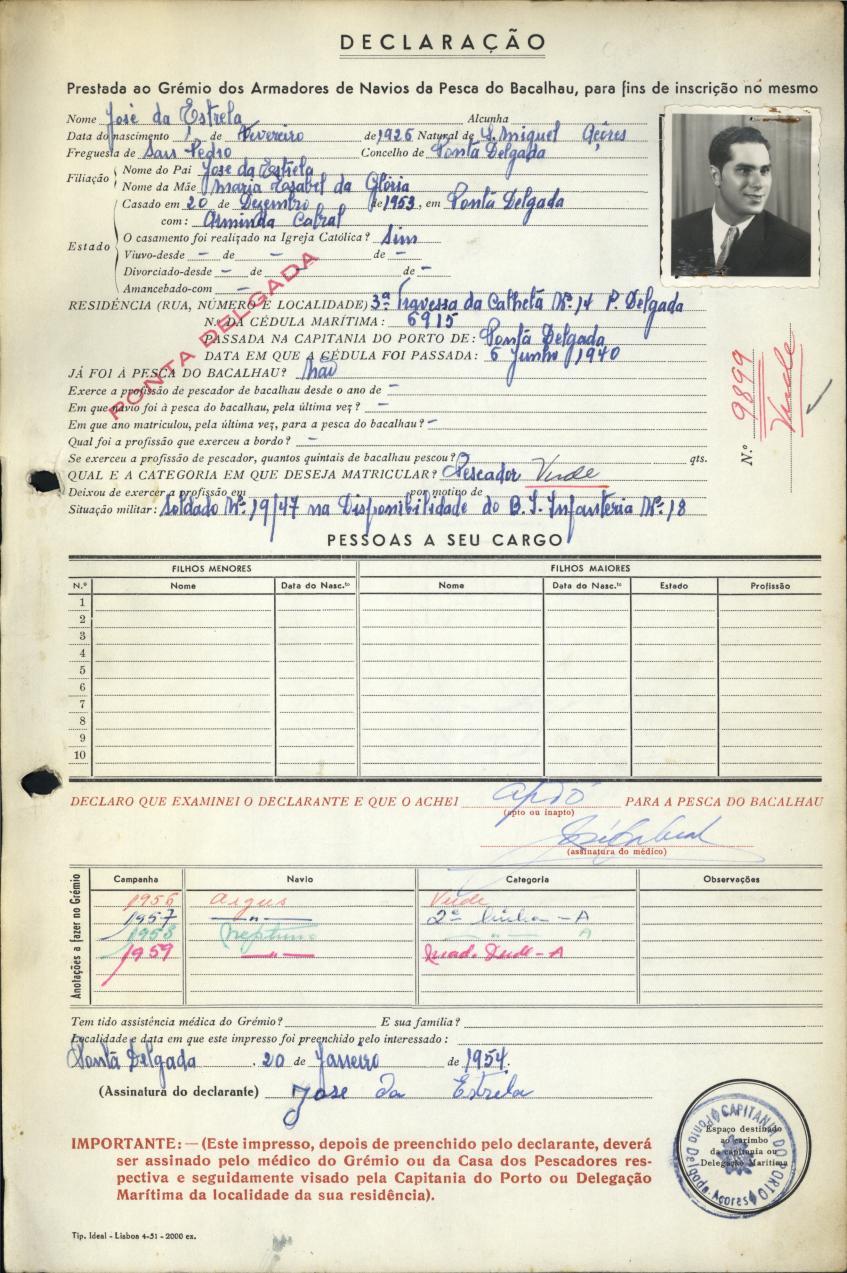 DECLARAÇÃO
Prestada ao Grémio dos Armadores de Navios da Pesca do Bacalhau, para fins de inscrição no mesmo
Nome José da Estrela Alcunha
Data do nascimento 1 de Fevereiro de 1926 Natural de S. Miguel Açôres
Freguesia de São Pedro Concelho de Ponta Delgada
Filiação Nome do Pai José da Estrela
Nome da Mãe Maria Izabel da Glória
Casado em 20 de Dezembro de 1953, em Ponta Delgada
com: Arminda Cabral
Estado O casamento foi realizado na Igreja Católica? Sim
Viuvo-desde - de - de -
Divorciado-desde - de - de -
Amancebado-com -
PONTA DELGADA
RESIDÊNCIA (RUA, NÚMERO E LOCALIDADE) 3ª Travessa da Calheta Nº 14 P. Delgada
N.º DA CÉDULA MARÍTIMA: 6915
PASSADA NA CAPITANIA DO PORTO DE: Ponta Delgada
DATA EM QUE A CÉDULA FOI PASSADA: 6 Junho 1940
JÁ FOI À PESCA DO BACALHAU? Não
Exerce a profissão de pescador de bacalhau desde o ano de -
Em que navio foi à pesca do bacalhau, pela última vez? -
Em que ano matriculou, pela última vez, para a pesca do bacalhau? -
Qual foi a profissão que exerceu a bordo? -
Se exerceu a profissão de pescador, quantos quintais de bacalhau pescou? qts.
QUAL E A CATEGORIA EM QUE DESEJA MATRICULAR? Pescador Verde
Deixou de exercer a profissão em por motivo de
Situação militar: Soldado Nº 19/47 na Disponibilidade do B. I. Infanteria Nº 18
N.º 9899
Verde
PESSOAS A SEU CARGO
FILHOS MENORES FILHOS MAIORES
N.º Nome Data do Nasc.to Nome Data do Nasc.to Estado Profissão
1
2
3
4
5
6
7
8
9
10
DECLARO QUE EXAMINEI O DECLARANTE E QUE O ACHEI apto PARA A PESCA DO BACALHAU
(apto ou inapto)
(assinatura do médico)
Anotações a fazer no Grémio
Campanha Navio Categoria Observações
1956 Argus Verde
1957 —"— 2ª linha - A
1958 Neptuno " A
1959 —"— Verde - A
Tem tido assistência médica do Grémio? E sua família?
Localidade e data em que este impresso foi preenchido pelo interessado:
Ponta Delgada, 20 de Janeiro de 1954.
(Assinatura do declarante) José da Estrela
IMPORTANTE: — (Este impresso, depois de preenchido pelo declarante, deverá
ser assinado pelo médico do Grémio ou da Casa dos Pescadores res-
pectiva e seguidamente visado pela Capitania do Porto ou Delegação
Marítima da localidade da sua residência).
CAPITANIA DO PORTO
Ponta Delgada - Açores
Espaço destinado
ao carimbo
da capitania ou
Delegação Marítima
Tip. Ideal - Lisboa 4-51 - 2000 ex.